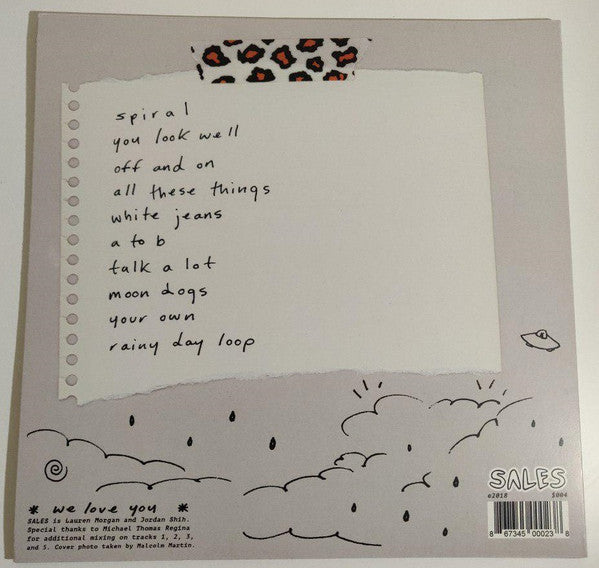 spiral
you look well
off and on
all these things
white jeans
a to b
talk a lot
moon dogs
your own
rainy day loop
* we love you *
SALES is Lauren Morgan and Jordan Shih.
Special thanks to Michael Thomas Regina
for additional mixing on tracks 1, 2, 3,
and 5. Cover photo taken by Malcolm Martin.
SALES
©2018 S004
8 67345 00023 8